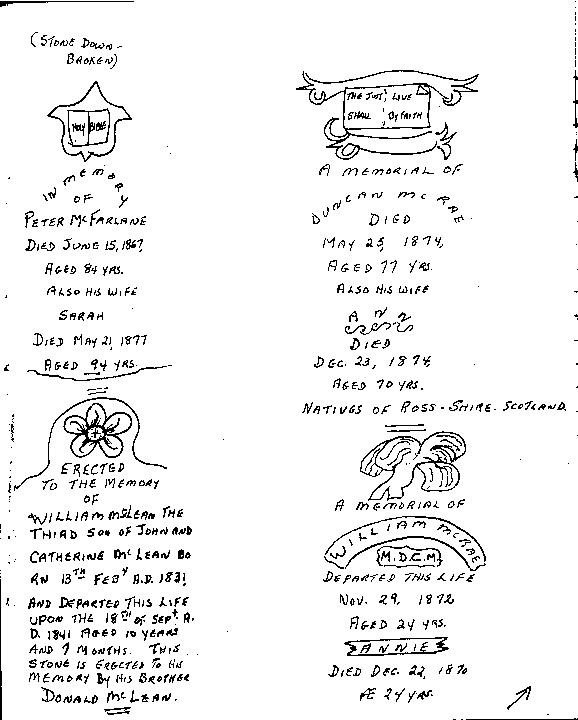 (STONE DOWN-
BROKEN)
HOLY BIBLE
IN MEMORY
OF
PETER McFARLANE
DIED JUNE 15, 1867,
AGED 84 YRS.
ALSO HIS WIFE
SARAH
DIED MAY 21, 1877
AGED 94 YRS.
ERECTED
TO THE MEMORY
OF
WILLIAM McLEAN THE
THIRD SON OF JOHN AND
CATHERINE McLEAN BO
RN 13TH FEBY A.D. 1831
AND DEPARTED THIS LIFE
UPON THE 18TH OF SEPT. A.
D. 1841 AGED 10 YEARS
AND 7 MONTHS. THIS
STONE IS ERECTED TO HIS
MEMORY BY HIS BROTHER
DONALD McLEAN.
THE JUST LIVE
SHALL BY FAITH
A MEMORIAL OF
DUNCAN McRAE
DIED
MAY 25, 1874,
AGED 77 YRS.
ALSO HIS WIFE
ANN
DIED
DEC. 23, 1874,
AGED 70 YRS.
NATIVES OF ROSS-SHIRE. SCOTLAND.
A MEMORIAL OF
WILLIAM McRAE
M.D.C.M.
DEPARTED THIS LIFE
NOV. 29, 1872
AGED 24 YRS.
ANNIE
DIED DEC. 22, 1870
Æ 24 YRS.